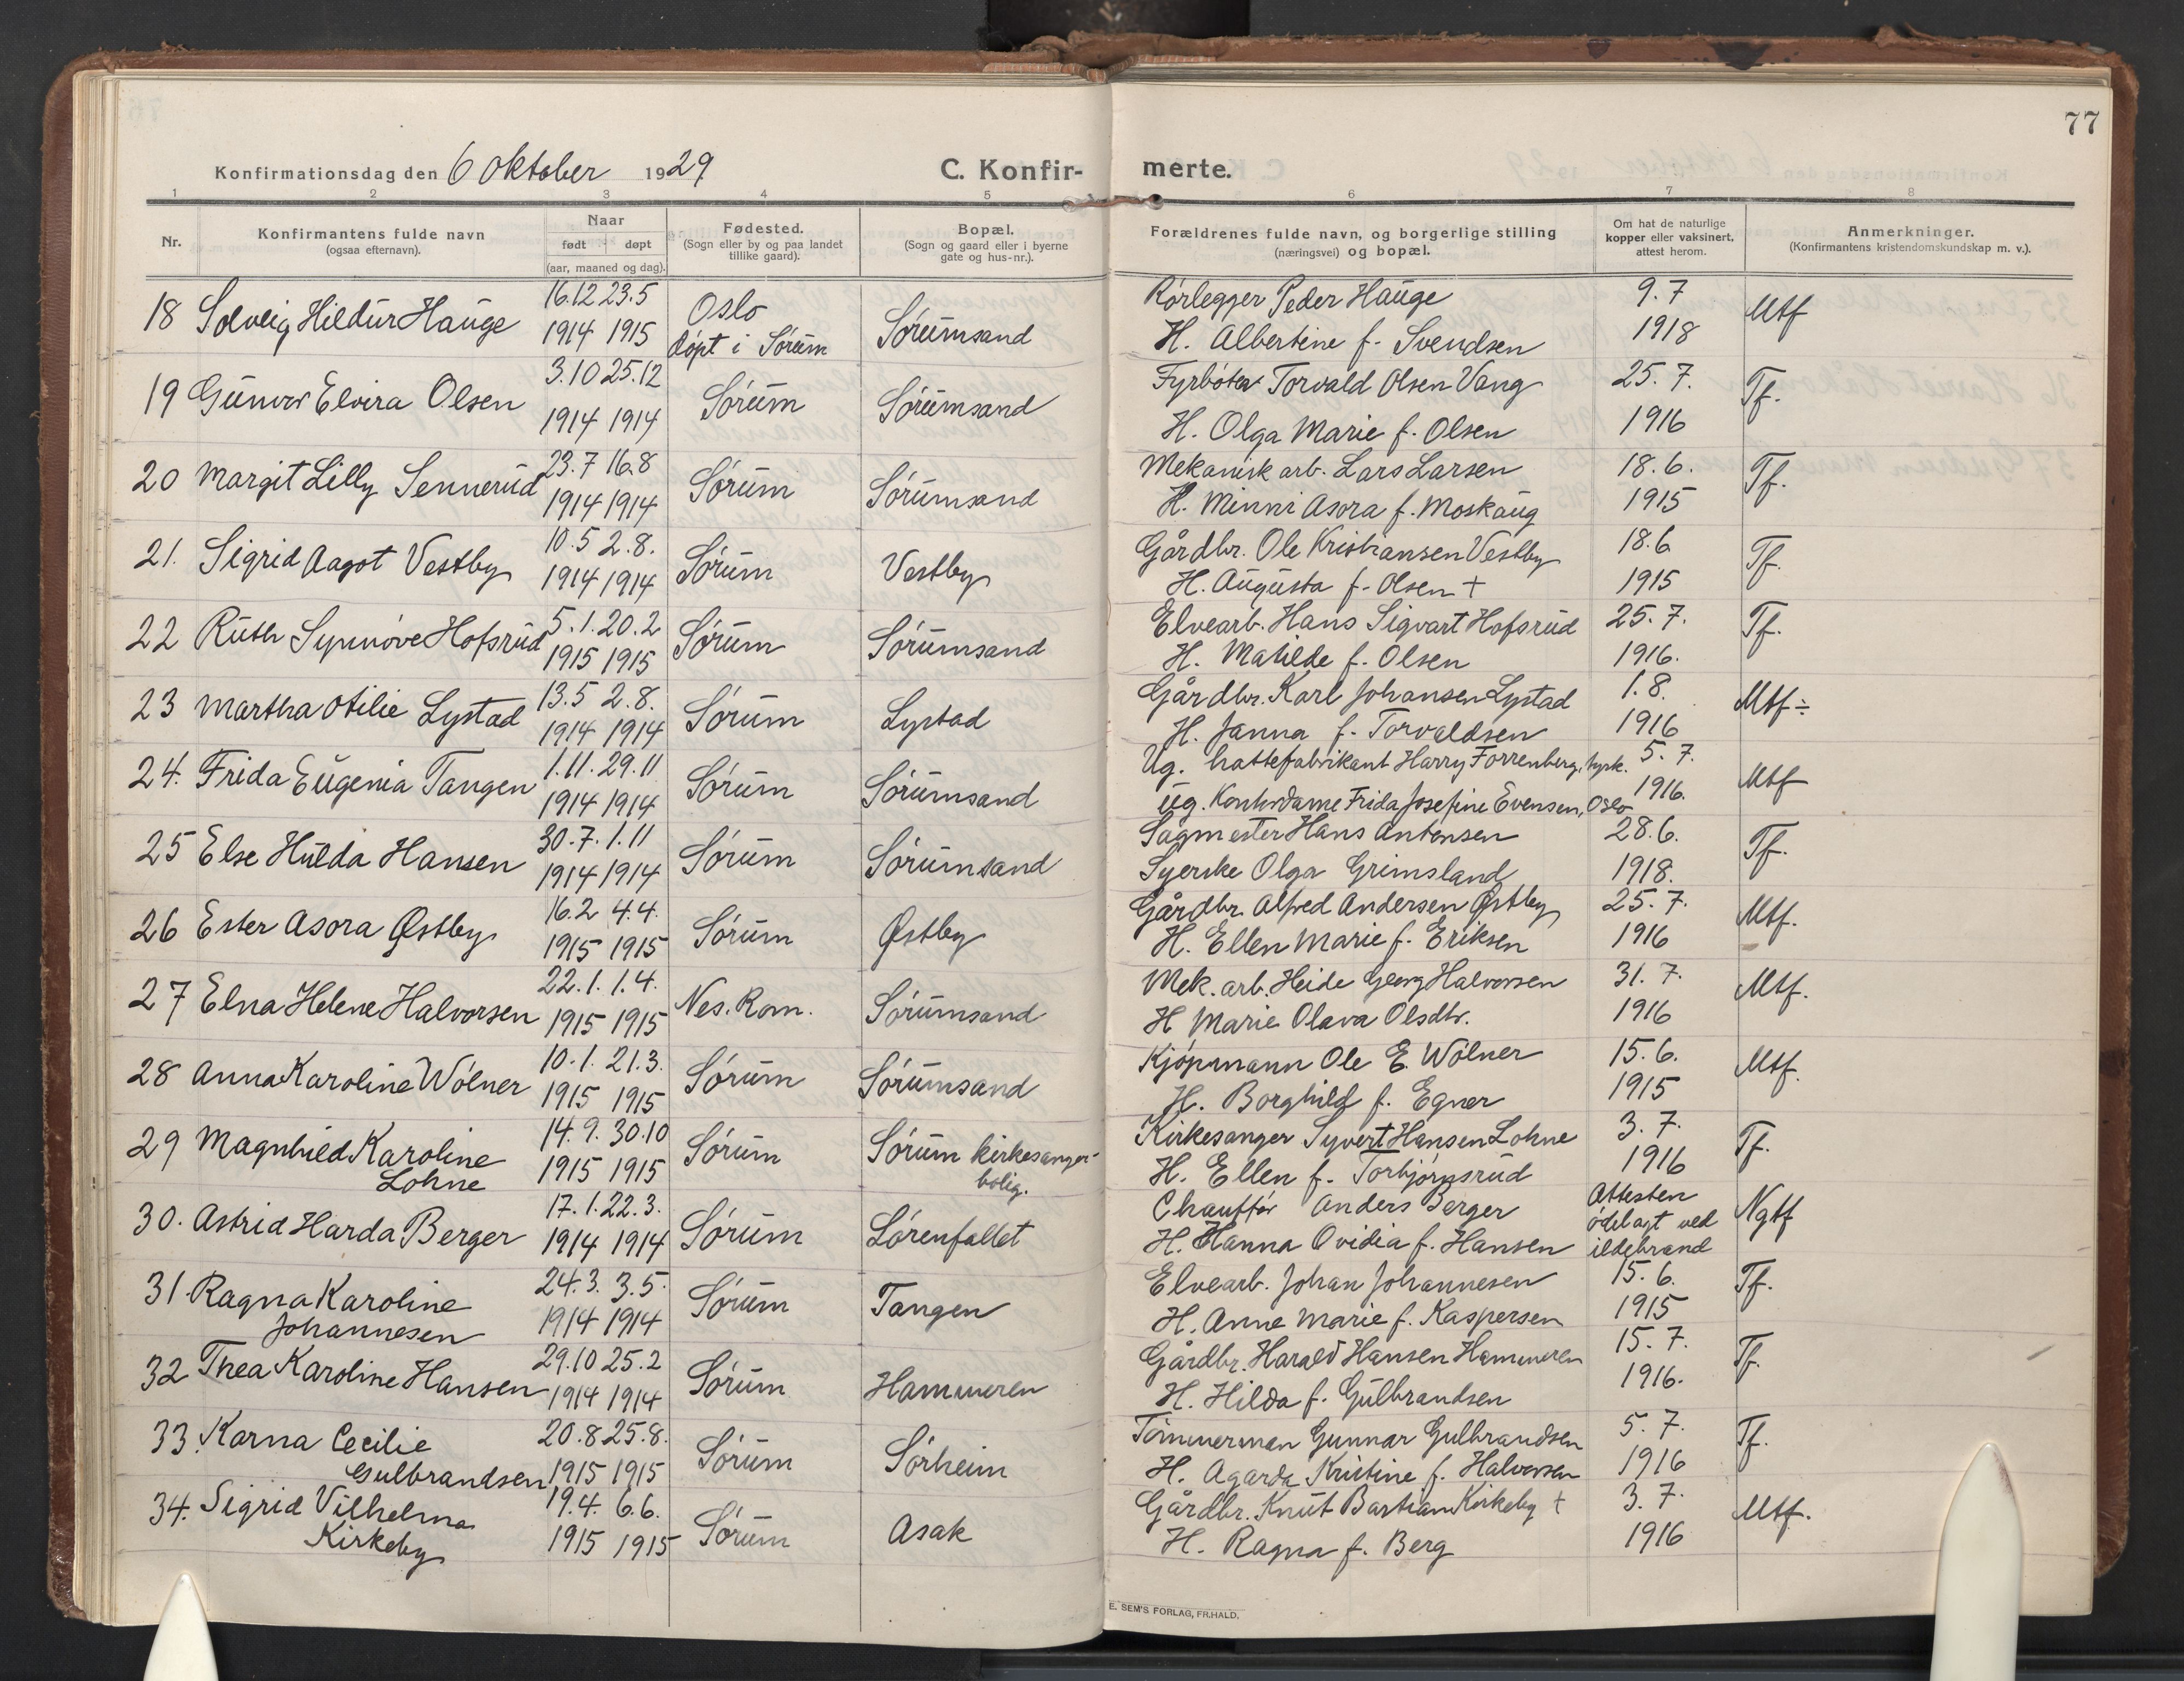 77
Konfirmationsdag den 6 oktober 1929.
C. Konfirmerte.
1 2 3 4 5 6 7 8
Nr.
Konfirmantens fulde navn
(ogsaa efternavn).
Naar
født døpt
(aar, maaned og dag).
Fødested.
(Sogn eller by og paa landet
tillike gaard).
Bopæl.
(Sogn og gaard eller i byerne
gate og hus-nr.).
Forældrenes fulde navn, og borgerlige stilling
(næringsvei) og bopæl.
Om hat de naturlige
kopper eller vaksinert,
attest herom.
Anmerkninger.
(Konfirmantens kristendomskundskap m. v.).
18 Solveig Hildur Hauge 16.12 23.5 Oslo Sørumsand Rørlegger Peder Hauge 9.7 Mtf
1914 1915 døpt i Sørum H. Albertine f. Svendsen 1918
19 Gunvor Elvira Olsen 3.10 25.12 Sørum Sørumsand Fyrbøter Torvald Olsen Vang 25.7. Tf.
1914 1914 H. Olga Marie f. Olsen 1916
20 Margit Lilly Sennerud 23.7 16.8 Sørum Sørumsand Mekanisk arb. Lars Larsen 18.6. Tf.
1914 1914 H. Minni Asora f. Moskaug 1915
21. Sigrid Aagot Vestby 10.5 2.8. Sørum Vestby Gårdbr. Ole Kristiansen Vestby 18.6 Tf.
1914 1914 H. Augusta f. Olsen + 1915
22 Ruth Synnøve Hofsrud 5.1. 20.2 Sørum Sørumsand Elvearb. Hans Sigvart Hofsrud 25.7. Tf.
1915 1915 H. Matilde f. Olsen 1916.
23 Martha Otilie Lystad 13.5 2.8. Sørum Lystad Gårdbr. Karl Johansen Lystad 1.8. Mtf÷
1914 1914 H. Janna f. Torvaldsen 1916
24. Frida Eugenia Tangen 1.11. 29.11 Sørum Sørumsand Ug. hattefabrikant Harry Forrenberg, tysk. 5.7. Mtf
1914 1914 ug. Kontordame Frida Josefine Evensen, Oslo 1916.
25 Else Hulda Hansen 30.7. 1.11 Sørum Sørumsand Sagmester Hans Antonsen 28.6. Tf.
1914 1914 Syerske Olga Grimsland 1918.
26 Ester Asora Østby 16.2 4.4. Sørum Østby Gårdbr. Alfred Andersen Østby 25.7. Mtf.
1915 1915 H. Ellen Marie f. Eriksen 1916
27 Elna Helene Halvorsen 22.1. 1.4. Nes. Rom. Sørumsand Mek. arb. Heide Georg Halvorsen 31.7. Mtf.
1915 1915 H Marie Olava Olsdtr. 1916
28 Anna Karoline Wølner 10.1. 21.3. Sørum Sørumsand Kjøpmann Ole E. Wølner 15.6. Mtf.
1915 1915 H. Borghild f. Egner 1915
29 Magnhild Karoline 14.9. 30.10 Sørum Sørum kirkesanger- Kirkesanger Syvert Hansen Lohne 3.7. Tf.
Lohne 1915 1915 bolig. H. Ellen f. Torbjørnsrud 1916
30. Astrid Harda Berger 17.1. 22.3. Sørum Lørenfallet Chauffør Anders Berger Attesten Ngtf
1914 1914 H. Hanna Ovidia f. Hansen ødelagt ved
ildebrand
31 Ragna Karoline 24.3. 3.5. Sørum Tangen Elvearb. Johan Johannesen 15.6. Tf.
Johannesen 1914 1914 H. Anne Marie f. Kaspersen 1915
32 Thea Karoline Hansen 29.10 25.2 Sørum Hammeren Gårdbr. Harald Hansen Hammeren 15.7. Tf.
1914 1914 H. Hilda f. Gulbrandsen 1916.
33. Karna Cecilie 20.8 25.8. Sørum Sørheim Tømmerman Gunnar Gulbrandsen 5.7. Tf.
Gulbrandsen 1915 1915 H. Agarda Kristine f. Halvorsen 1916
34. Sigrid Vilhelma 19.4. 6.6. Sørum Asak Gårdbr. Knut Bastian Kirkeby + 3.7. Mtf.
Kirkeby 1915 1915 H. Ragna f. Berg 1916
E. SEM'S FORLAG, FR.HALD.